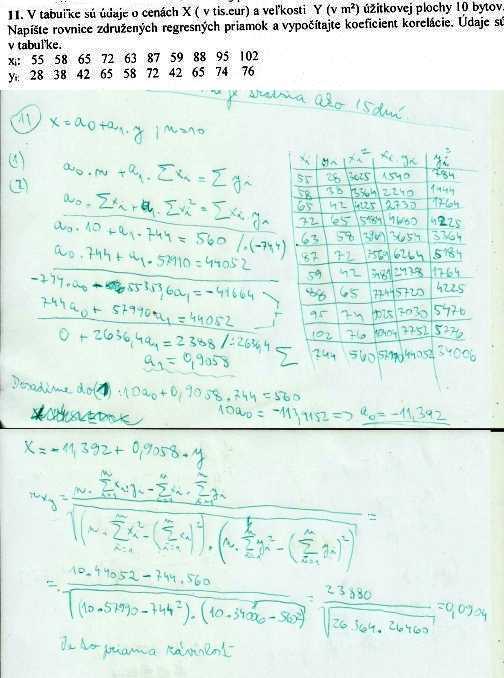 11. V tabuľke sú údaje o cenách X ( v tis.eur) a veľkosti Y (v m²) úžitkovej plochy 10 bytov.
Napíšte rovnice združených regresných priamok a vypočítajte koeficient korelácie. Údaje sú
v tabuľke.
xᵢ: 55 58 65 72 63 87 59 88 95 102
yᵢ: 28 38 42 65 58 72 42 65 74 76
je ako 15 dní.
11 x = a₀ + a₁.y ; n=10
(1) a₀.n + a₁.∑xᵢ = ∑yᵢ
(2) a₀.∑xᵢ + a₁.∑xᵢ² = ∑xᵢ.yᵢ
a₀.10 + a₁.744 = 560 /.(-744)
a₀.744 + a₁.57990 = 44052
-744.a₀ - 55353,6a₁ = -41664
744a₀ + 57990.a₁ = 44052
0 + 2636,4a₁ = 2388 /:2636,4
a₁ = 0,9058
xᵢ yᵢ xᵢ² xᵢ.yᵢ yᵢ²
55 28 3025 1540 784
58 38 3364 2240 1444
65 42 4225 2730 1764
72 65 5184 4680 4225
63 58 3969 3654 3364
87 72 7569 6264 5184
59 42 3481 2478 1764
88 65 7744 5720 4225
95 74 9025 7030 5476
102 76 10404 7752 5776
∑ 744 560 57990 44052 34006
Dosadíme do (1) : 10a₀ + 0,9058.744 = 560
10a₀ = -113,9152 => a₀ = -11,392
X = -11,392 + 0,9058.y
r xy = n.∑xᵢyᵢ - ∑xᵢ.∑yᵢ / √(n.∑xᵢ² - (∑xᵢ)²).(n.∑yᵢ² - (∑yᵢ)²) =
= 10.44052 - 744.560 / √(10.57990 - 744²).(10.34006 - 560²) = 23880 / √26364.26460 = 0,0904
Je to priama závislosť